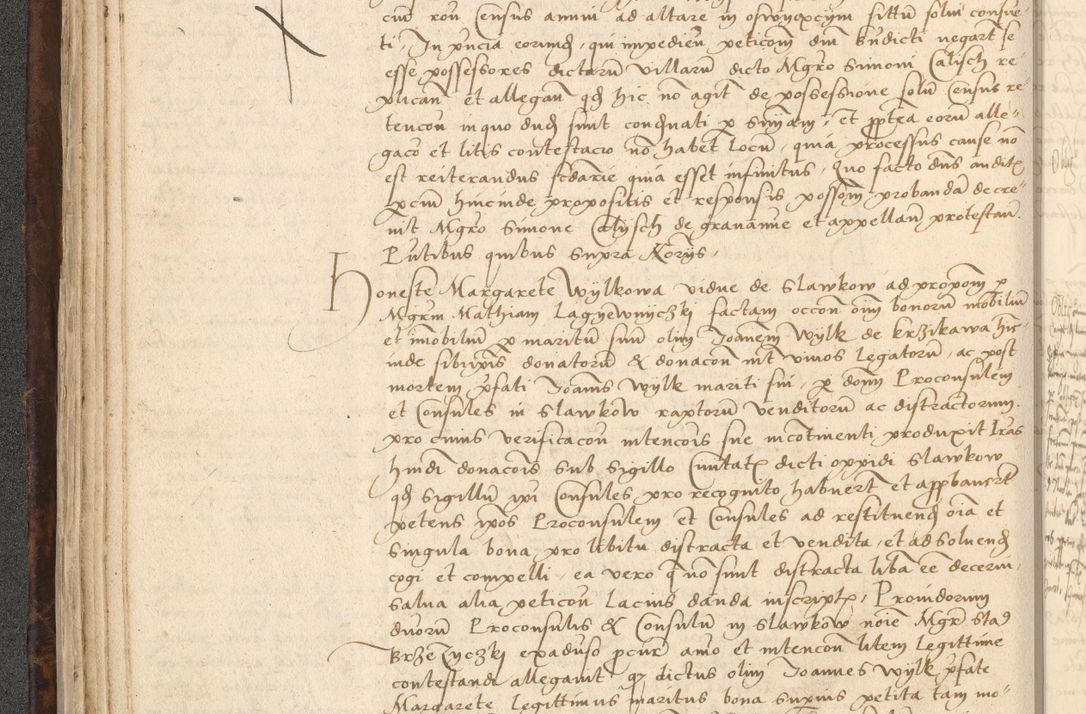 ciū roū Census annui ad altare in oswyączym sittū solui consue-
ti, In pñcia eorundē, qui impedieñ peticoni dni sindici negart se
esse possessores dictarū villarū dicto Mgro Simoni Calisch re
plicañ et allegañ qđ hic nō agit de possessione solū Census re
tencoñ in quo dudū sunt condēnati p sniām, et pptea eorū alle-
gacō et litis contestacio nō habet locū, quia processus cause nō
est reiterandus scđarie quia esset infinitus, Quo facto dns auditis
pciū hincinde propositis et responsis possessionem probandā decre-
uit Mgro Simone Calisch de grauamine et appellañ protestañ.
Pñtibus quibus supra Notarijs,
Honeste Margarete Wylkowa vidue de Slawkow ad propoñ p
Mgrm Mathiam Lagyewnyczki factam occoñ oīm bonorū mobiliū
et imobiliū p maritū suū olim Joannem Wylk de krzikawa hic
inde sibiipsis donatorū & donacoñ int viuos legatorū, ac post
mortem pfati Joanīs Wylk mariti sui, p dominū Proconsulem
et Consules in Slawkow raptorū venditorū ac distractorum.
pro cuius verificacoñ intencois sue incotinenti produxit lras
hmōi donacois sub sigillo Ciuitatis dicti oppidi Slawkow
qđ sigillū ipi Consules pro recognito habuert et approbauert
petens ipos Proconsulem et Consules ad restituendū oīa et
singula bona pro libitu distracta et vendita, et ad soluendū
cogi et compelli, ea vero q̄ nō sunt distracta libā eē decerni,
salua alia peticoñ lacius danda in scriptis, Prouidorum
duorū Proconsulis & Consulū in Slawkow noīe Mgr Stađ
Brzezyczki ex aduso pcur. anō et intencoñ litem legittime
contestandi allegauit qđ dictus olim Joannes Wylk pfate
Margarete legittimus maritus bona superius petita tam mo-